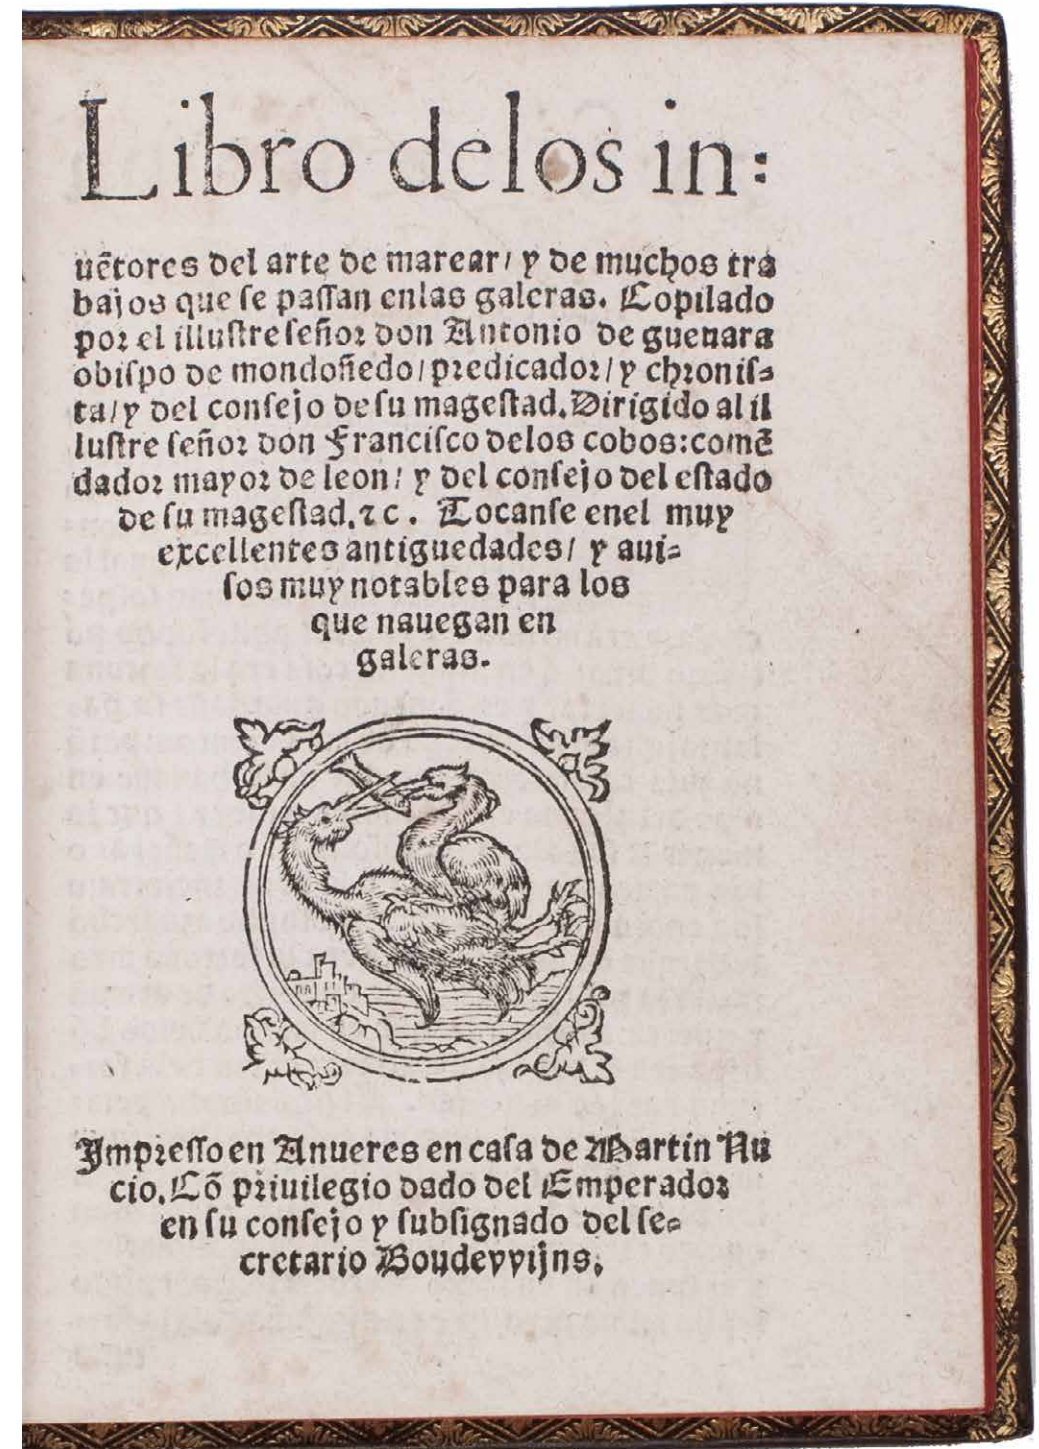 Libro delos in:
uẽtores del arte de marear/ y de muchos tra
bajos que se passan enlas galeras. Copilado
por el illustre señor don Antonio de gueuara
obispo de mondoñedo/predicador/y chronis-
ta/y del consejo de su magestad. Dirigido al il
lustre señor don Francisco delos cobos:comẽ
dador mayor de leon/ y del consejo del estado
de su magestad.⁊c. Tocanse enel muy
excellentes antiguedades/ y aui-
sos muy notables para los
que nauegan en
galeras.
Impresso en Anueres en casa de Martin Nu
cio. Cõ priuilegio dado del Emperador
en su consejo y subsignado del se-
cretario Boudevvijns.